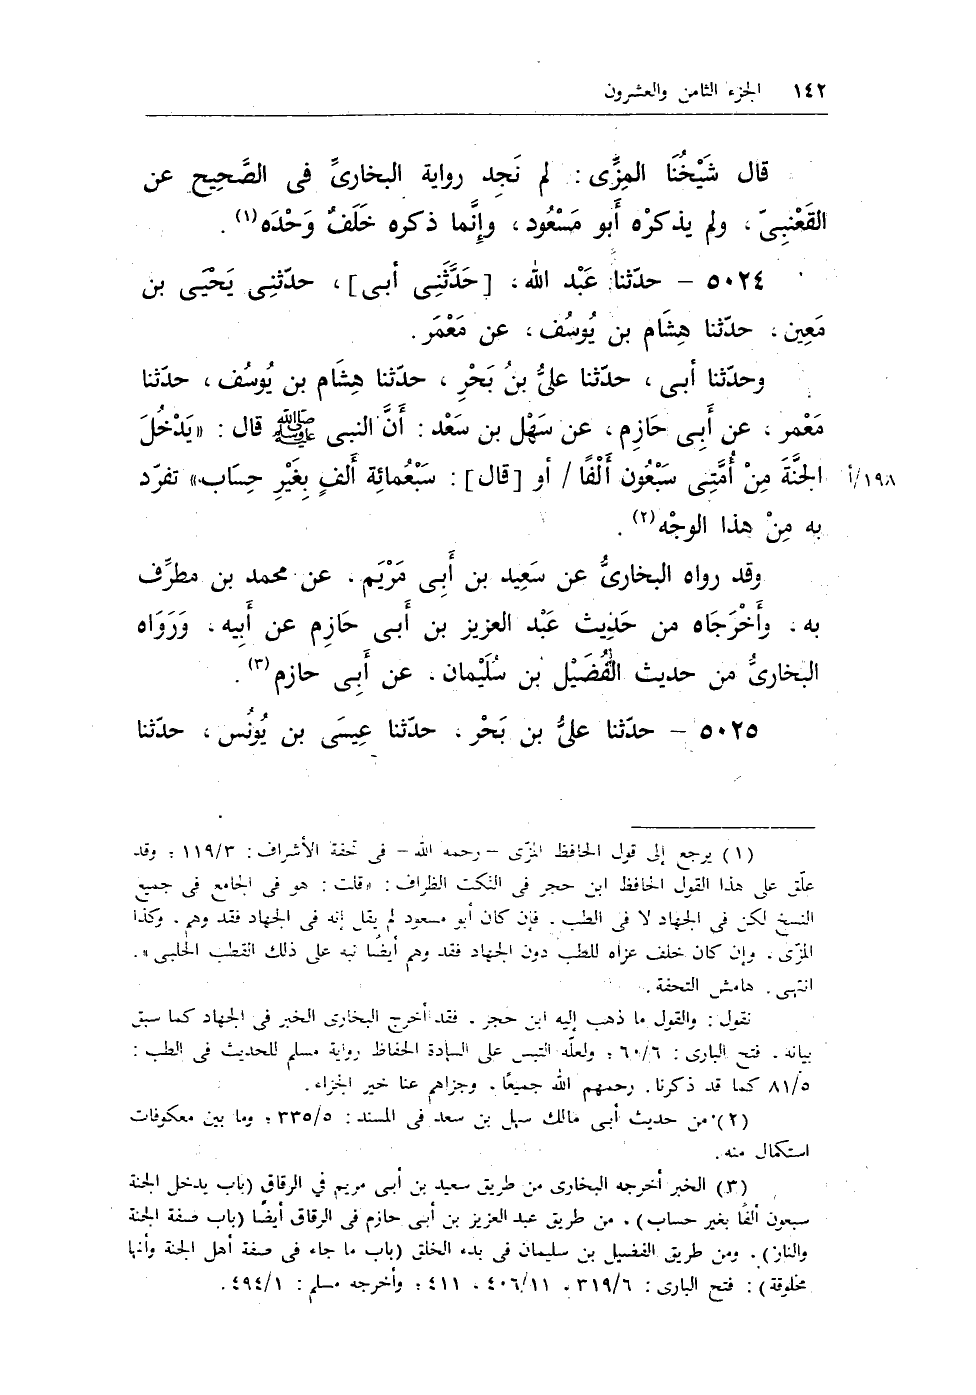 ١٤٢ الجزء الثامن والعشرون
قال شَيْخُنَا المِزِّى : لم نَجِد رواية البخارىِّ فى الصَّحِيحِ عن
القَعْنبِىّ ، ولم يذكرْه أَبو مَسْعُود ، وإِنَّما ذكره خَلَفٌ وَحْدَه (١) .
٥٠٢٤ – حدّثنا عَبْد الله ، [حَدَّثَنِى أبى] ، حدّثنِى يَحْيَى بن
مَعِين ، حدّثنا هِشَام بن يُوسُف ، عن مَعْمَر .
وحدّثنا أبى ، حدّثنا علىُّ بنُ بَحْرٍ ، حدّثنا هِشَام بن يُوسُف ، حدّثنا
مَعْمر ، عن أَبِى حَازِم ، عن سَهْل بن سَعْد : أَنَّ النبى ﷺ قال : «يَدْخُلَ
الجَنَّةَ مِنْ أُمَّتِى سَبْعُون أَلْفًا / أو [قال] : سَبْعُمائِة أَلفٍ بِغَيْرِ حِسَاب» تفرّد ١٩٨/أ
به مِنْ هذا الوجْه (٢) .
وقد رواه البخارىُّ عن سَعِيد بن أَبِى مَرْيَم ، عن محمد بن مطرِّف
به . وأَخْرَجَاه من حَدِيث عَبْد العزيز بن أَبِى حَازِم عن أَبِيه . وَرَوَاه
البخارىُّ من حديث الفُضَيْل بن سُلَيْمان ، عن أَبِى حازم (٣) .
٥٠٢٥ – حدّثنا علىُّ بن بَحْر ، حدّثنا عِيسَى بن يُونُس ، حدّثنا
(١) يرجع إلى قول الحافظ المزّى – رحمه الله – فى تحفة الأشراف : ١١٩/٣ ؛ وقد
علّق على هذا القول الحافظ ابن حجر فى النكت الظراف : «قلت : هو فى الجامع فى جميع
النسخ لكن فى الجهاد لا فى الطب . فإن كان أبو مسعود لم يقل إنه فى الجهاد فقد وهم . وكذا
المزّى . وإن كان خلف عزاه للطب دون الجهاد فقد وهم أيضًا نبه على ذلك القطب الحلبى» .
انتهى . هامش التحفة .
نقول : والقول ما ذهب إليه ابن حجر . فقد أخرج البخارى الخبر فى الجهاد كما سبق
بيانه . فتح البارى : ٦٠/٦ ؛ ولعلّه التبس على السادة الحفاظ رواية مسلم للحديث فى الطب :
٨١/٥ كما قد ذكرنا . رحمهم الله جميعًا . وجزاهم عنا خير الجزاء .
(٢) من حديث أبى مالك سهل بن سعد فى المسند : ٣٣٥/٥ ؛ وما بين معكوفات
استكمال منه .
(٣) الخبر أخرجه البخارى من طريق سعيد بن أبى مريم في الرقاق (باب يدخل الجنة
سبعون ألفًا بغير حساب) . من طريق عبد العزيز بن أبى حازم فى الرقاق أيضًا (باب صفة الجنة
والنار) . ومن طريق الفضيل بن سليمان فى بدء الخلق (باب ما جاء فى صفة أهل الجنة وأنها
مخلوقة) : فتح البارى : ٣١٩/٦ . ٤٠٦/١١ . ٤١١ ؛ وأخرجه مسلم : ٤٩٤/١ .